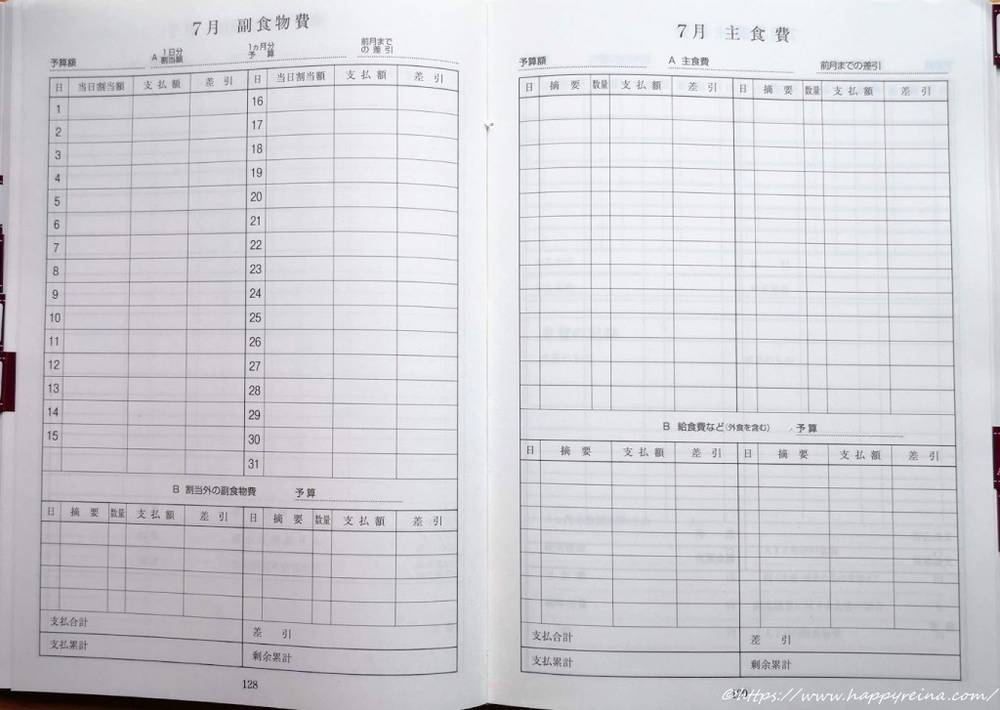 7月 副食物費
予算額 A 1日分割当額 1ヵ月分予算 前月までの差引
日 当日割当額 支払額 差引 日 当日割当額 支払額 差引
1 16
2 17
3 18
4 19
5 20
6 21
7 22
8 23
9 24
10 25
11 26
12 27
13 28
14 29
15 30
31
B 割当外の副食物費 予算
日 摘要 数量 支払額 差引 日 摘要 数量 支払額 差引
支払合計 差引
支払累計 剰余累計
128
7月 主食費
予算額 A 主食費 前月までの差引
日 摘要 数量 支払額 差引 日 摘要 数量 支払額 差引
B 給食費など(外食を含む) 予算
日 摘要 支払額 差引 日 摘要 支払額 差引
支払合計 差引
支払累計 剰余累計
©https://www.happyreina.com/